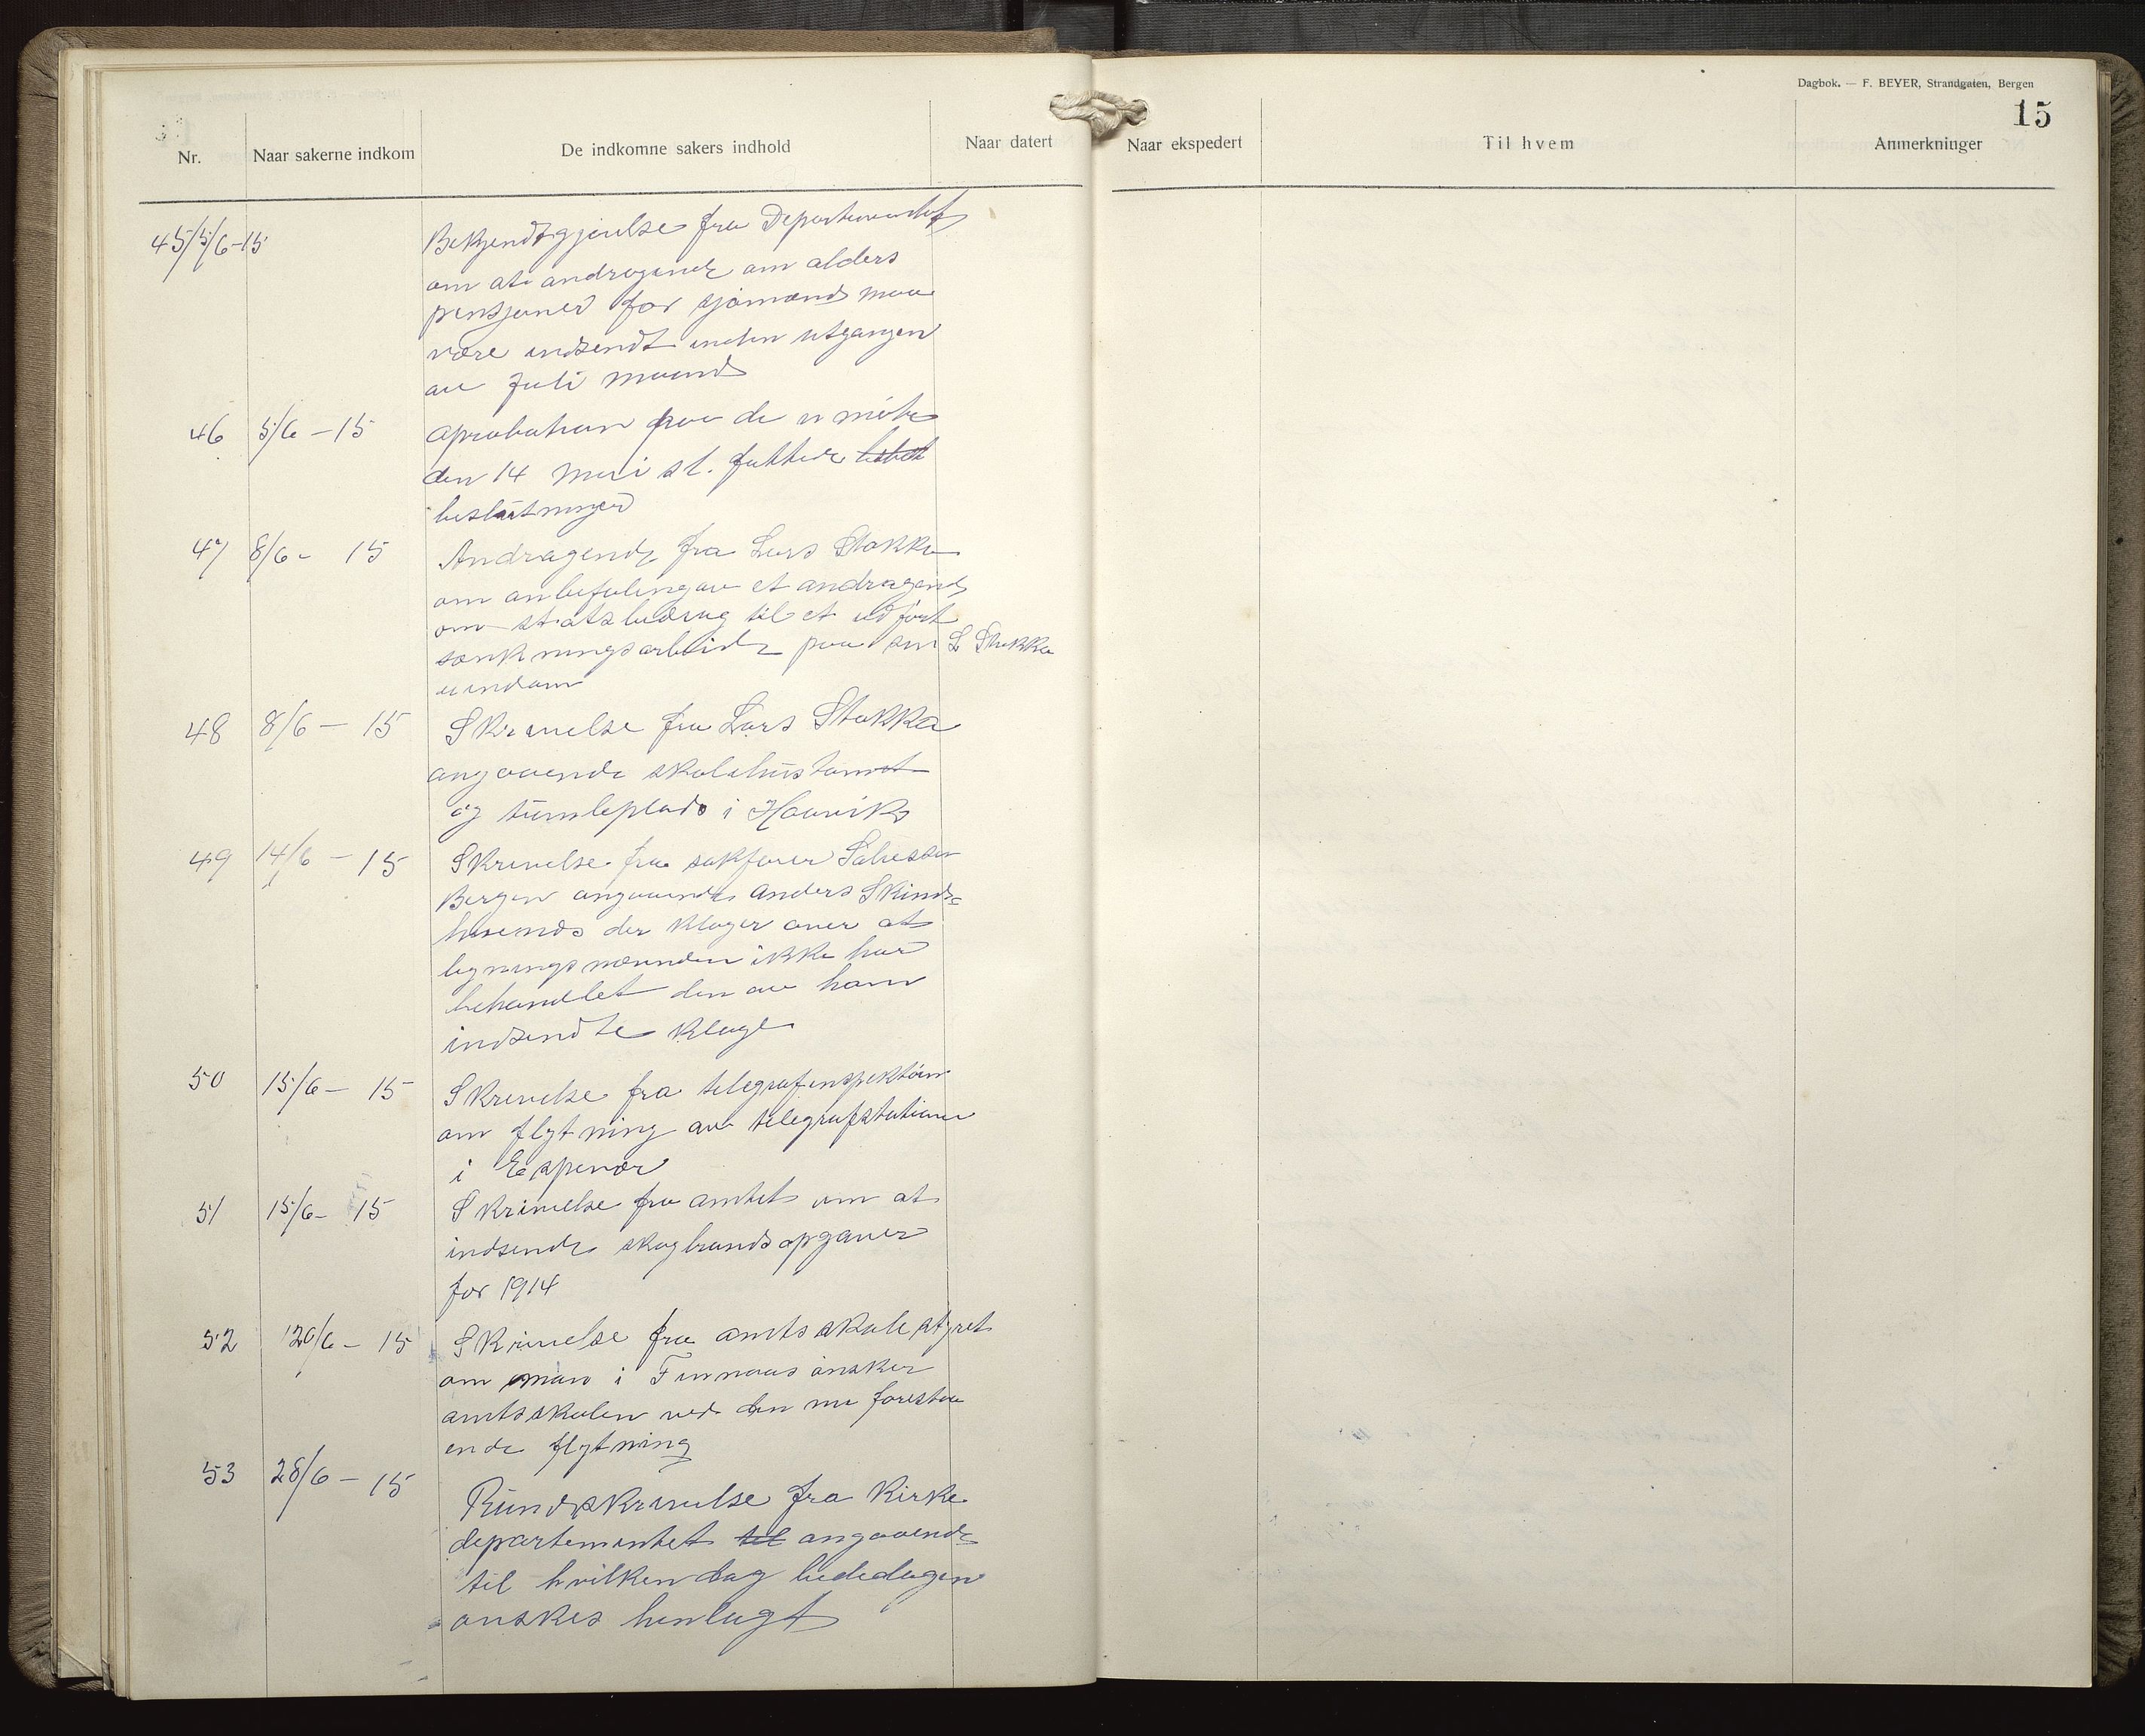 Dagbok. — F. BEYER, Strandgaten, Bergen
15
Nr. Naar sakerne indkom De indkomne sakers indhold Naar datert Naar ekspedert Til hvem Anmerkninger
45 5/6-15 Bekjendtgjørelse fra Departementet
om at andragende om alders
pensjoner for sjømænd maa
være indsendt inden utgangen
av Juli maaned
46 5/6 - 15 Aprobation paa de i møte
den 14 Mai sl. fattede
beslutninger
47 8/6 - 15 Andragende fra Lars Stokka
om anbefaling av et andragende
om statsbidrag til et utført
sænkningsarbeide paa sin L Stokka
eiendom
48 8/6 - 15 Skrivelse fra Lars Stokka
angaaende skolehustomt
og tumleplads i Hovvik
49 14/6 - 15 Skrivelse fra sakfører
Bergen angaaende Anders Skinds-
husends der klager over at
ligningsnævnden ikke har
behandlet den av ham
indsendte klage
50 15/6 - 15 Skrivelse fra telegrafinspektøren
om flytning av telegrafstationen
i Espevær
51 15/6 - 15 Skrivelse fra amtet om at
indsende skogbrandsopgaver
for 1914
52 20/6 - 15 Skrivelse fra amtsskolestyret
om man i Finnaas ønsker
amtsskolen ved den nu forestaa
ende flytning
53 28/6 - 15 Rundskrivelse fra Kirke
departementet til angaaende
til hvilken dag bededagen
ønskes henlagt